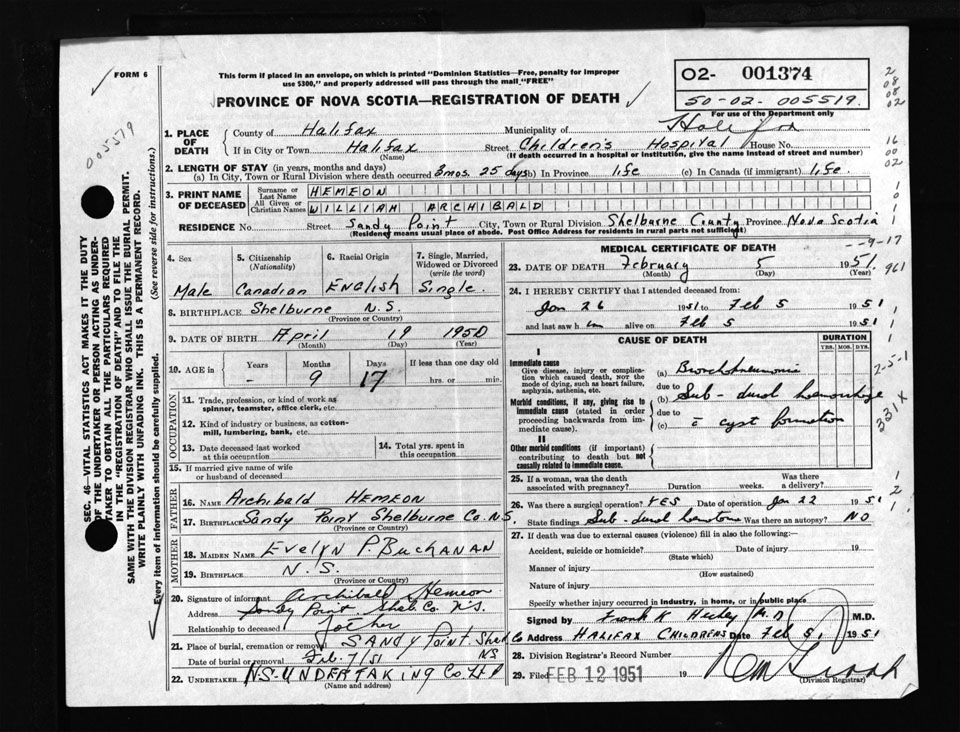 FORM 6
This form if placed in an envelope, on which is printed "Dominion Statistics—Free, penalty for improper
use $300," and properly addressed will pass through the mail "FREE"
PROVINCE OF NOVA SCOTIA—REGISTRATION OF DEATH
O2- 001374
50-02-005519.
For use of the Department only
005579
2
08
08
02
1. PLACE OF DEATH
County of Halifax Municipality of Halifax
If in City or Town Halifax Street Children's Hospital House No.
(Name) (If death occurred in a hospital or institution, give the name instead of street and number)
16
00
02
2. LENGTH OF STAY (in years, months and days)
(a) In City, Town or Rural Division where death occurred 3 mos. 25 days (b) In Province life (c) In Canada (if immigrant) life.
3. PRINT NAME OF DECEASED
Surname or Last Name HEMEON
All Given or Christian Names WILLIAM ARCHIBALD
RESIDENCE No. Street Sandy Point City, Town or Rural Division Shelburne County Province Nova Scotia
(Residency means usual place of abode. Post Office Address for residents in rural parts not sufficient)
4. Sex
Male
5. Citizenship
(Nationality)
Canadian
6. Racial Origin
English
7. Single, Married,
Widowed or Divorced
(write the word)
Single.
8. BIRTHPLACE Shelburne N.S.
(Province or Country)
9. DATE OF BIRTH April 19 1950
(Month) (Day) (Year)
10. AGE in
Years Months Days If less than one day old
- 9 17 hrs. or min.
OCCUPATION
11. Trade, profession, or kind of work as
spinner, teamster, office clerk, etc.
12. Kind of industry or business, as cotton-
mill, lumbering, bank, etc.
13. Date deceased last worked
at this occupation
14. Total yrs. spent in
this occupation
15. If married give name of wife
or husband of deceased
FATHER
16. Name Archibald HEMEON
17. Birthplace Sandy Point Shelburne Co. N.S.
(Province or Country)
MOTHER
18. Maiden Name Evelyn P. Buchanan
19. Birthplace N.S.
(Province or Country)
20. Signature of informant Archibald Hemeon
Address Sandy Point Shelb. Co. N.S.
Relationship to deceased Father
21. Place of burial, cremation or removal SANDY Point Shelb Co
NS
Date of burial or removal Feb. 7/51
22. Undertaker N.S. UNDERTAKING Co. Ltd
(Name and address)
MEDICAL CERTIFICATE OF DEATH
23. DATE OF DEATH February 5 1951.
(Month) (Day) (Year)
--9-17
961
24. I HEREBY CERTIFY that I attended deceased from:
Jan 26 1951 to Feb 5 1951
and last saw h im alive on Feb 5 1951
CAUSE OF DEATH
DURATION
YRS. MOS. DYS.
I
Immediate cause
Give disease, injury or complica-
tion which caused death, not the
mode of dying, such as heart failure,
asphyxia, asthenia, etc.
(a) Bronchopneumonia
due to
Morbid conditions, if any, giving rise to
immediate cause (stated in order
proceeding backwards from im-
mediate cause).
(b) Sub-dural haemorrhage
due to
(c) c̄ cyst formation
II
Other morbid conditions (if important)
contributing to death but not
causally related to immediate cause.
331X
25. If a woman, was the death
associated with pregnancy? Duration weeks. Was there
a delivery?
26. Was there a surgical operation? YES Date of operation Jan 22 1951
State findings Sub-dural hematoma Was there an autopsy? NO
27. If death was due to external causes (violence) fill in also the following:—
Accident, suicide or homicide? Date of injury 19
(State which)
Manner of injury
(How sustained)
Nature of injury
Specify whether injury occurred in industry, in home, or in public place
Signed by Frank K M.D M.D.
Address HALIFAX CHILDRENS Date Feb 5, 1951
28. Division Registrar's Record Number
29. Filed FEB 12 1951 19
(Division Registrar)
SEC. 46—VITAL STATISTICS ACT MAKES IT THE DUTY
OF THE UNDERTAKER OR PERSON ACTING AS UNDER-
TAKER TO OBTAIN ALL THE PARTICULARS REQUIRED
IN THE "REGISTRATION OF DEATH" AND TO FILE THE
SAME WITH THE DIVISION REGISTRAR WHO SHALL ISSUE THE BURIAL PERMIT.
WRITE PLAINLY WITH UNFADING INK. THIS IS A PERMANENT RECORD.
Every item of information should be carefully supplied. (See reverse side for instructions.)